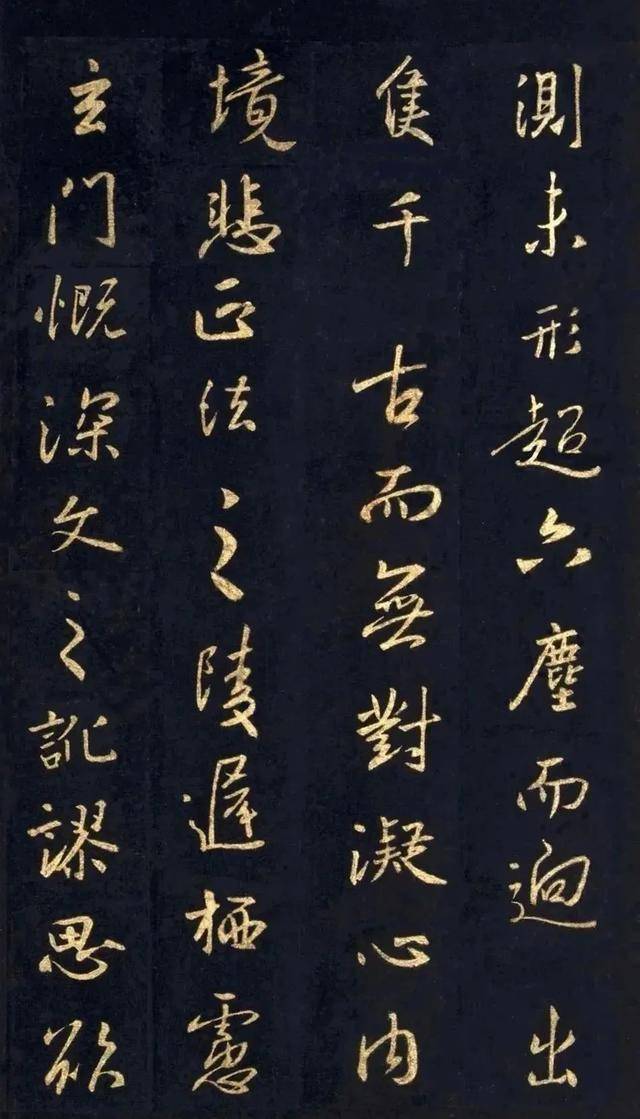 測未形超六塵而逈出
隻千古而無對凝心内
境悲正法之陵遲栖慮
玄門慨深文之訛謬思欲